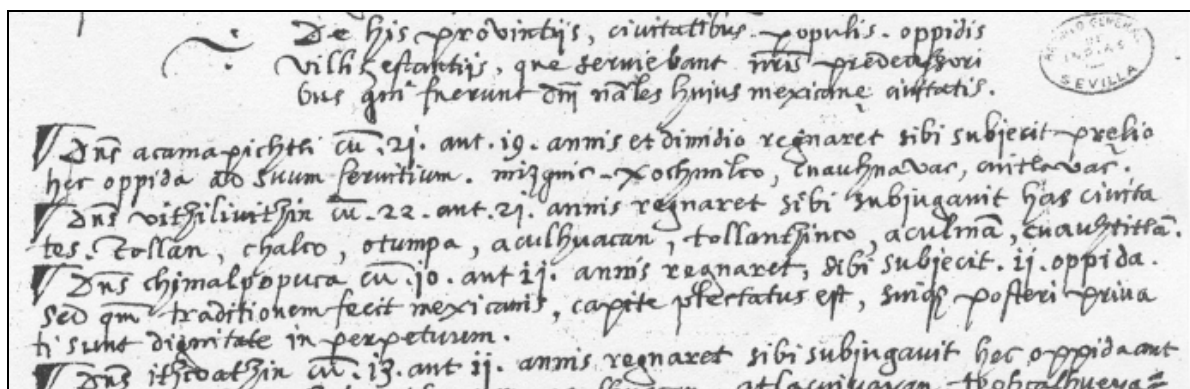 De his provintijs, civitatibus. populis. oppidis
villis estantijs, que serviebant nris predecessori
bus qm fuerunt dni nales hujus mexicane civitatis.
ARCHIVO GENERAL
DE
INDIAS
SEVILLA
Dns acamapichtli cu .21. ant .19. annis et dimidio regnaret sibi subjecit prelio
hec oppida ad suum servitium. mizquic - xochmilco, cuauhnavac, cuitlavac.
Dns vithilivithin cu .22. ant .21. annis regnaret sibi subjugavit has civita
tes. tollan, chalco, otumpa, aculhuacan, tollanthinco, aculmã, cuauhtitlã.
Dns chimalpopuca cu .10. ant 11. annis regnaret, sibi subjecit .11. oppida.
sed qm traditionem fecit mexicanis, capite plectatus est, suiq posteri priva
ti sunt dignitate in perpetuum.
Dns ithcoathin cu .13. ant 11. annis regnaret sibi subjugavit hec oppida ant